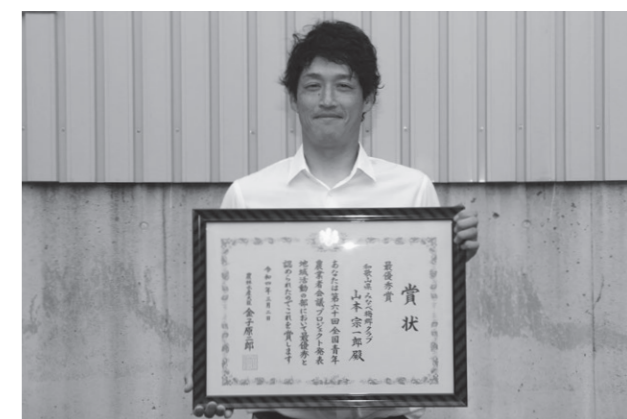 賞状
最優秀賞
和歌山県 みなべ梅郷クラブ
山本 宗一郎 殿
あなたは第六十回全国青年
農業者会議プロジェクト発表
地域活動の部において最優秀と
認められたのでこれを賞します
令和四年三月二日
農林水産大臣 金子原二郎